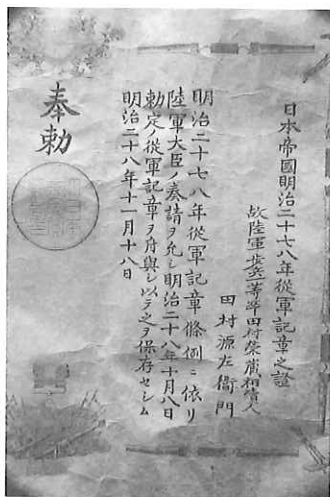 日本帝國明治二十七八年從軍記章之證
故陸軍歩兵一等卒田村榮藏相續人
田村源左衞門
明治二十七八年從軍記章條例ニ依リ
陸軍大臣ノ奏請ヲ允シ明治二十八年十月八日
勅定ノ從軍記章ヲ府與シ以テ之ヲ保存セシム
明治二十八年十一月十八日
奉勅